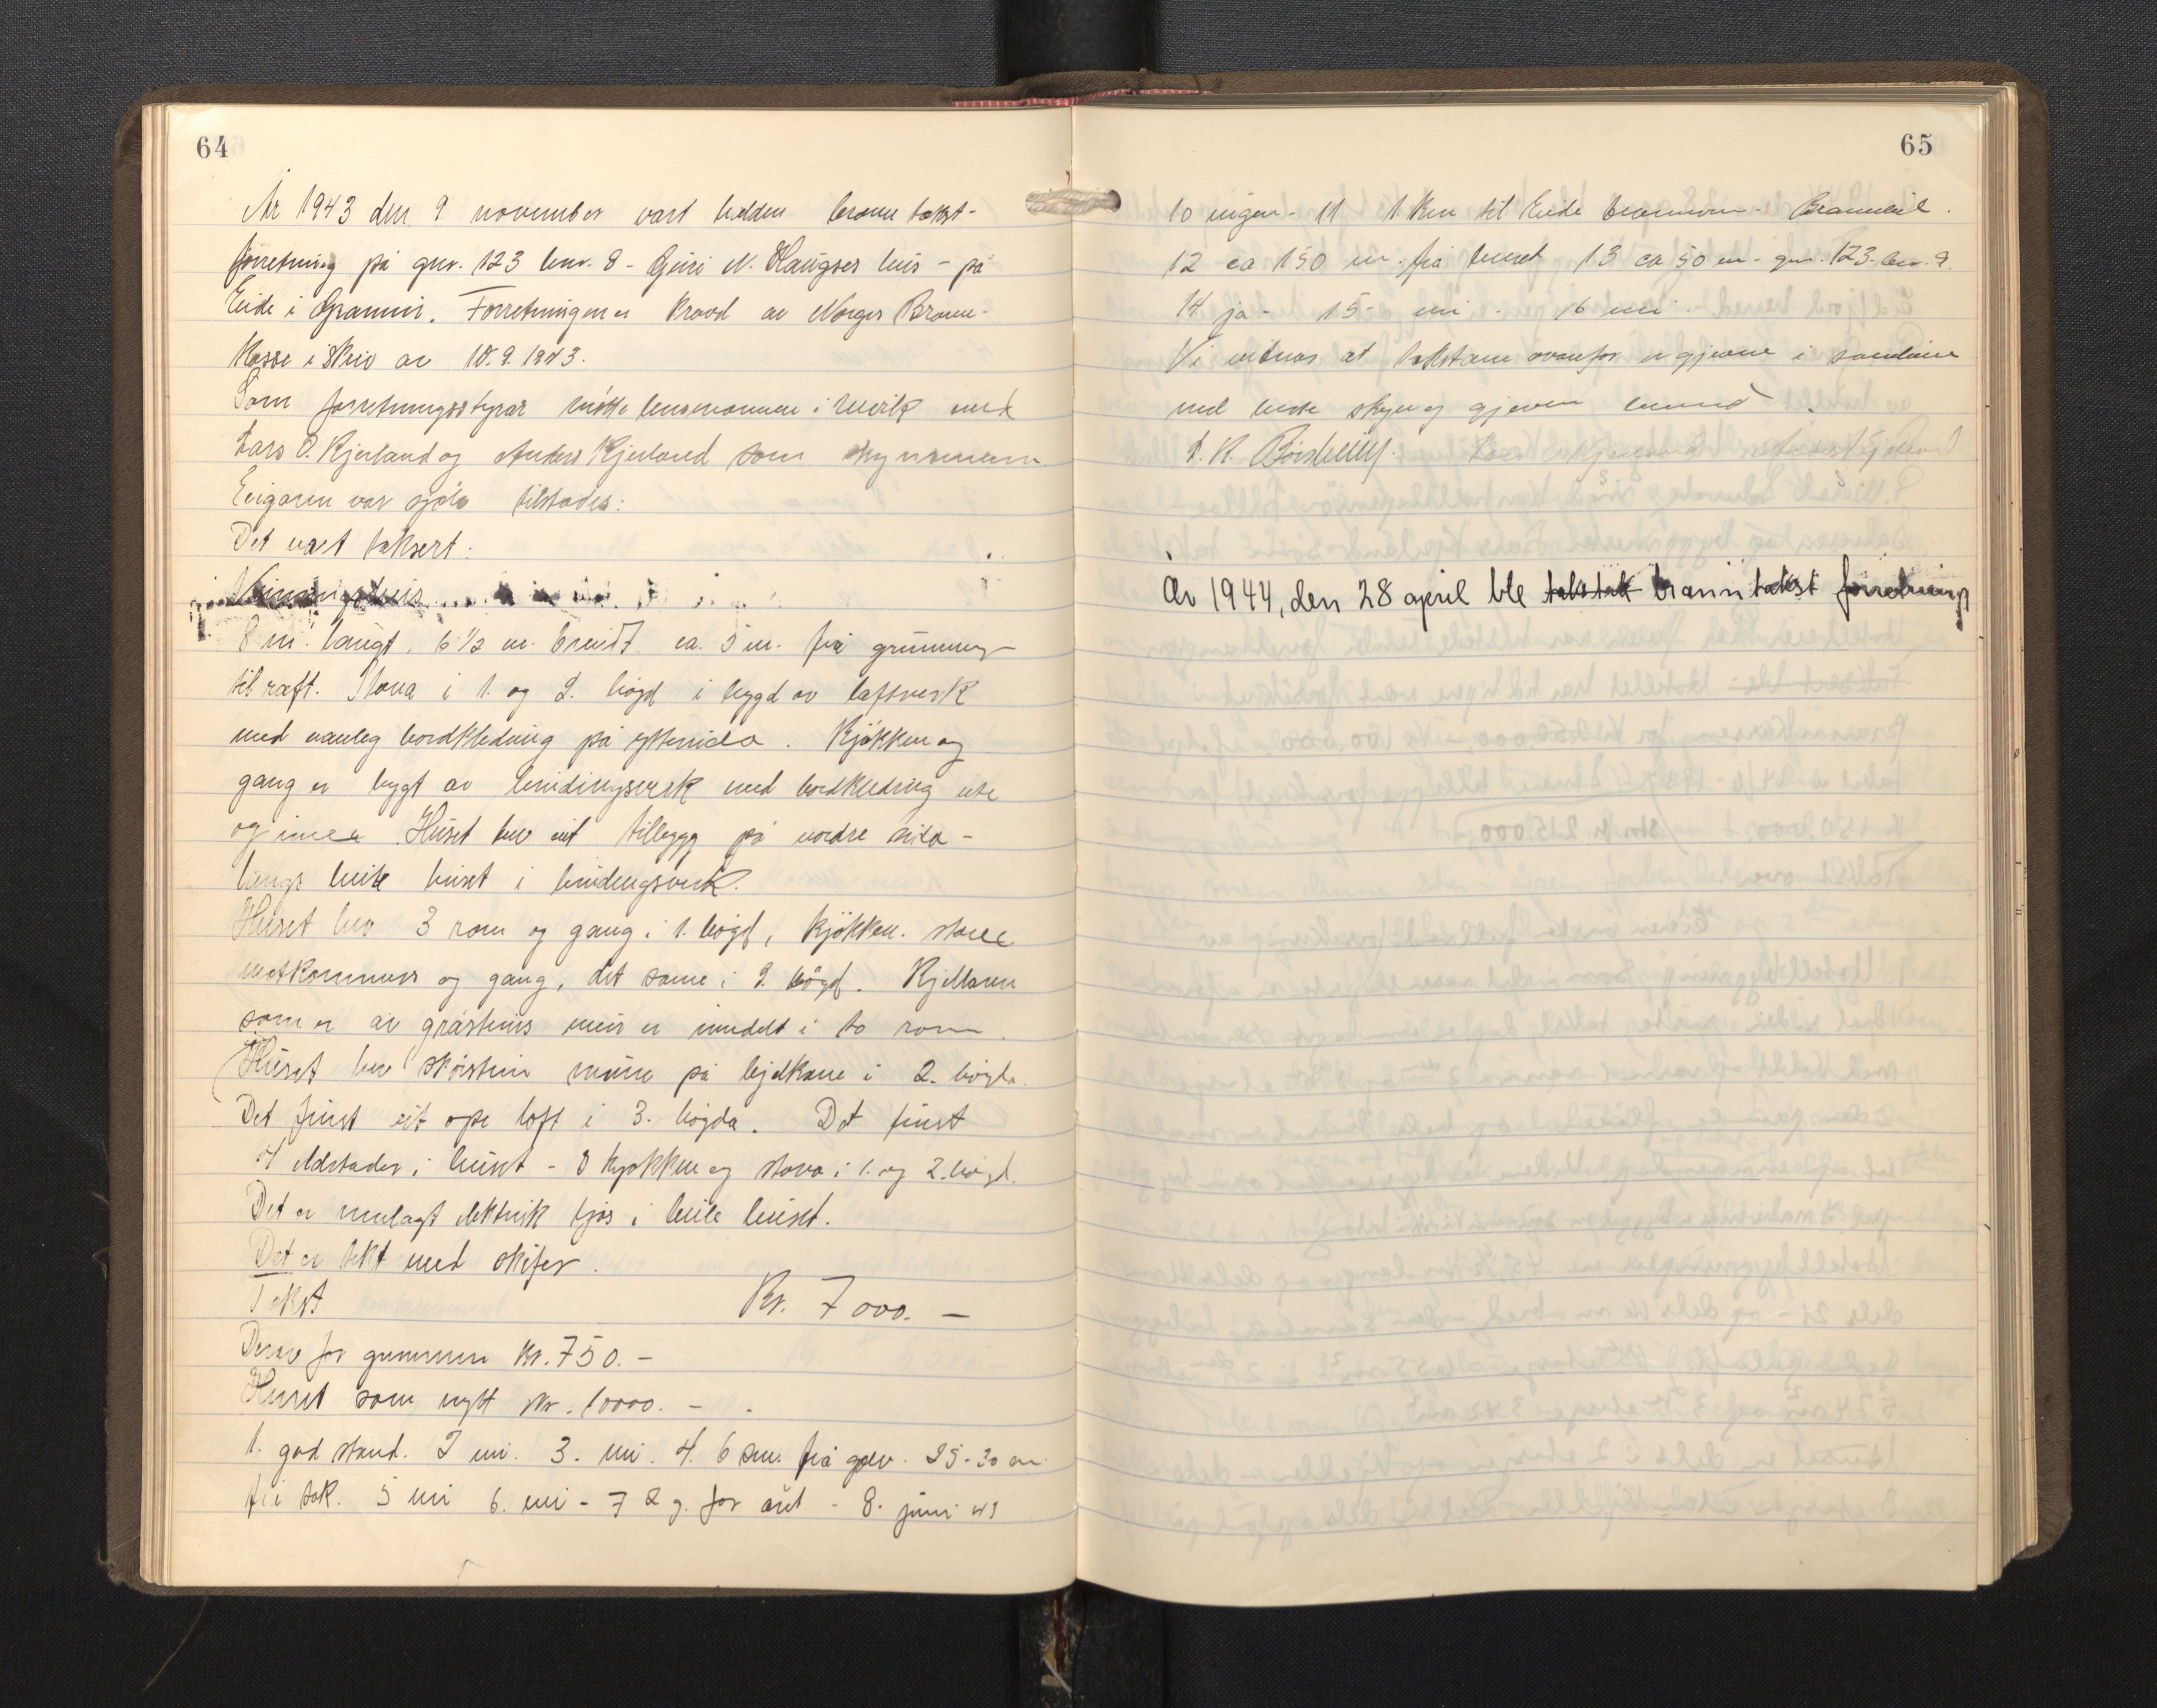 64
År 1943 den 9 november vart halden branntakst-
forretning på gnr. 123 bnr. 8 - Guri N. Haugses hus - på
Eide i Granvin. Forretningen er kravd av Norges Brann-
kasse i skriv av 10.9.1943.
Som forretningsstyrar møtte lensmannen i Ulvik med
Lars O. Kjerland og Anders Kjerland som skynsmenn
Eigaren var sjølv tilstades:
Det vart taksert:
Våningshus
8 m. langt, 6 1/2 m. breidt ca. 5 m. frå grunnmur
til raft. Stova i 1. og 2. høgd i bygd av laftverk
med vanleg bordkledning på yttersida. Kjøkken og
gang er bygt av bindingsverk med bordkledning ute
og inne. Huset hev eit tilbygg på nordre sida -
langs heile huset i bindingsverk.
Huset hev 3 rom og gang i 1. høgd, kjøkken. stove
matkammers og gang, det same i 2. høgd. Kjellaren
som er av gråsteins mur er inndelt i to rom
Huset hev skorstein på bjelkane i 2. høgda.
Det finst eit ope loft i 3. høgda. Det finst
4 eldstader i huset - 2 kjøkken og stova i 1. og 2. høgd.
Det er innlagt elektrisk ljos i heile huset.
Det er tekt med skifer.
Takst Kr. 7000.-
Derav for grunnmur kr. 750.-
Huset som nytt kr. 10000.-
1. god stand. 2 nei. 3. nei. 4. 6 cm. frå golv. 25-30 cm
frå tak. 5 nei 6. nei - 7 2 g. for året - 8. juni 43
65
10 ingen - 11 1 km til Eide brannvern - Brannbil.
12 ca 150 m. frå huset 13 ca 50 m - gnr. 123. bnr. 9.
14 ja - 15 - nei - 16 nei.
Vi vitnar at takstane ovanfor er gjevne i samhøve
med beste skyn og gjeven
Lars Kjerland Anders Kjerland
År 1944, den 28 april ble branntakst forretnings